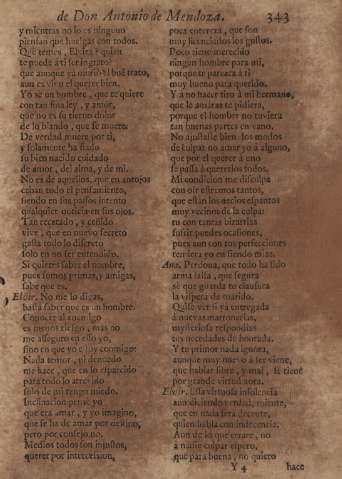 de Don Antonio de Mendoza. 343
y mientras no lo es ninguno
piensan que huelgas con todos.
Que temes, Elvira? quien
te puede à ti ser ingrato?
que aunque ya murió el buẽ trato,
aun es vivo el querer bien.
Yo sè un hombre, que te quiere
con tan fina ley, y amor,
que no es su tierno dolor
de lo blando, que se muere.
De verdad muere por ti,
y solamente ha fiado
su bien nacido cuidado
de amor, del alma, y de mi.
No es de aquellos, que en antojos
echan todo el pensamiento,
siendo en sus passos intento
qualquier noticia en sus ojos.
Tan recatado, y ceñido
vive, que en nuevo secreto
gasta todo lo discreto
solo en no ser entendido.
Si quieres saber el nombre,
pues somos primas, y amigas,
sabe que es.
Elvir. No me lo digas,
basta saber que es un hombre.
Conocer al enemigo
es menos riesgo, mas no
me asseguro en esso yo,
sino en que yo estoy conmigo:
Nada temor, ni
me hace, que en lo esparcido
para todo lo atrevido
solo de mi tengo miedo.
Inclinacion pensè yo
que era amar, y yo imagino,
que se ha de amar por destino,
pero por consejo no.
Medios todos son injustos,
querer por intercession,
poca entereza, que son
muy licenciados los gustos.
Poco tiene merecido
ningun hombre para mi,
porque te parezca à ti
muy bueno para querido.
Y à no hacer tiro à mi hermano,
que le quieras te pidiera,
porque el hombre no tuviera
tan buenas partes en vano.
No quisalle bien los modos
de culpar no amar yo à alguno,
que por el querer à uno
se passa à quererlos todos.
Mi condicion me disculpa
con oir estremos tantos,
que estàn los necios espantos
muy vecinos de la culpa:
tu con tantas bizarrias
sufrir puedes ocasiones,
pues aun con tus perfecciones
temiera yo en siendo mias.
Ana. Perdona, que todo ha sido
arma falsa, que segura
sè que guarda tu clausura
la vispera de marido.
Quise ver si ya entregada
à nuevas matronerias,
mysteriosa respondias
tus necedades de honrada.
Y tu primor nada ignora,
aunque muy nuevo à ser viene,
que hablar libre, y mal, se tiene
por grande virtud aora.
Elvir. Essa virtuosa insolencia
aun diciendo verdad, miente,
que en nada serà decente,
quien habla con indecencia.
Aun de lo que errare, no
à nadie culpar espero,
que para buena, no quiero
Y 4 hace